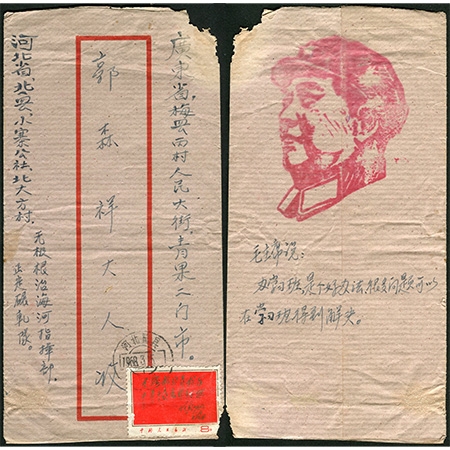 廣东省,梅县西村人民大街,青果二门市。
郭森祥大人收
河北省,北县,小寨公社,北大方村,
无极根治海河指挥部,
正定碾轧队。
1968.3
中国人民邮政 8
毛主席说:
办学习班,是个好办法,很多问题可以
在学习班得到解决。